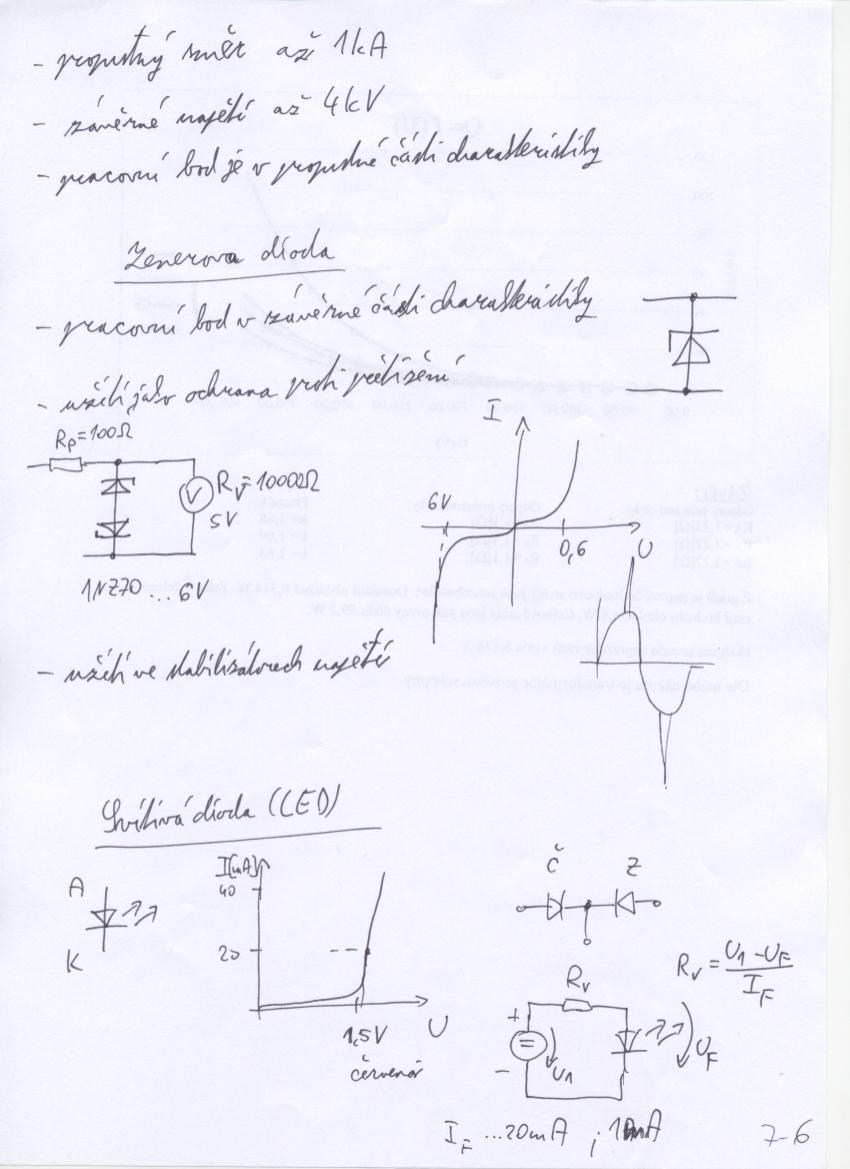 - propustný směr až 1kA
- závěrné napětí až 4kV
- pracovní bod je v propustné části charakteristiky
Zenerova dioda
- pracovní bod v závěrné části charakteristiky
- užití jako ochrana proti přetížení
Rp=100Ω
V
Rv=10000Ω
5V
1NZ70 ... 6V
I
6V
0,6
U
- užití ve stabilizátorech napětí
Svítivá dioda (LED)
A
K
I[mA]
40
20
1,5V
U
červená
Č
Z
Rv = U1 - UF / IF
Rv
+
=
-
U1
UF
IF ...20mA ; 10mA
7-6